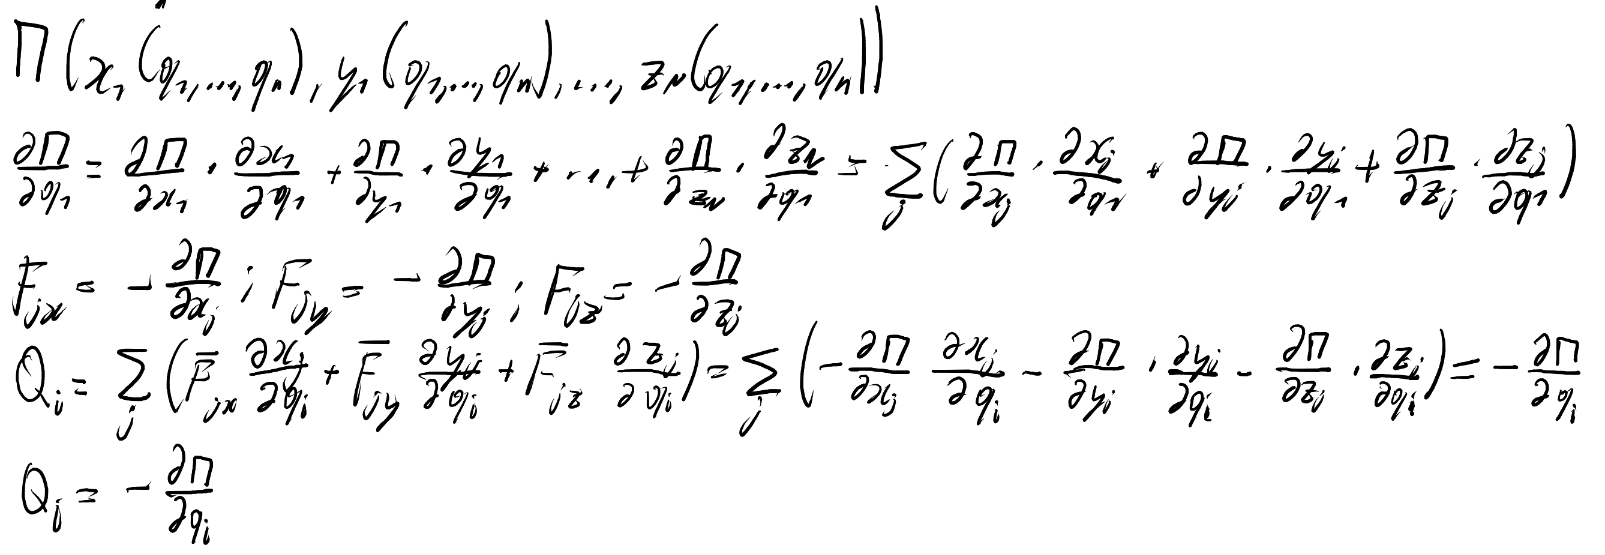 П(x₁(q₁,...,qₙ), y₁(q₁,...,qₙ),..., z_N(q₁,...,qₙ))
∂П/∂q₁ = ∂П/∂x₁ · ∂x₁/∂q₁ + ∂П/∂y₁ · ∂y₁/∂q₁ + ... + ∂П/∂z_N · ∂z_N/∂q₁ = ∑_j (∂П/∂x_j · ∂x_j/∂q₁ + ∂П/∂y_j · ∂y_j/∂q₁ + ∂П/∂z_j · ∂z_j/∂q₁)
F_jx = - ∂П/∂x_j ; F_jy = - ∂П/∂y_j ; F_jz = - ∂П/∂z_j
Q_i = ∑_j (F̅_jx ∂x_j/∂q_i + F̅_jy ∂y_j/∂q_i + F̅_jz ∂z_j/∂q_i) = ∑_j (- ∂П/∂x_j ∂x_j/∂q_i - ∂П/∂y_j · ∂y_j/∂q_i - ∂П/∂z_j · ∂z_j/∂q_i) = - ∂П/∂q_i
Q_i = - ∂П/∂q_i